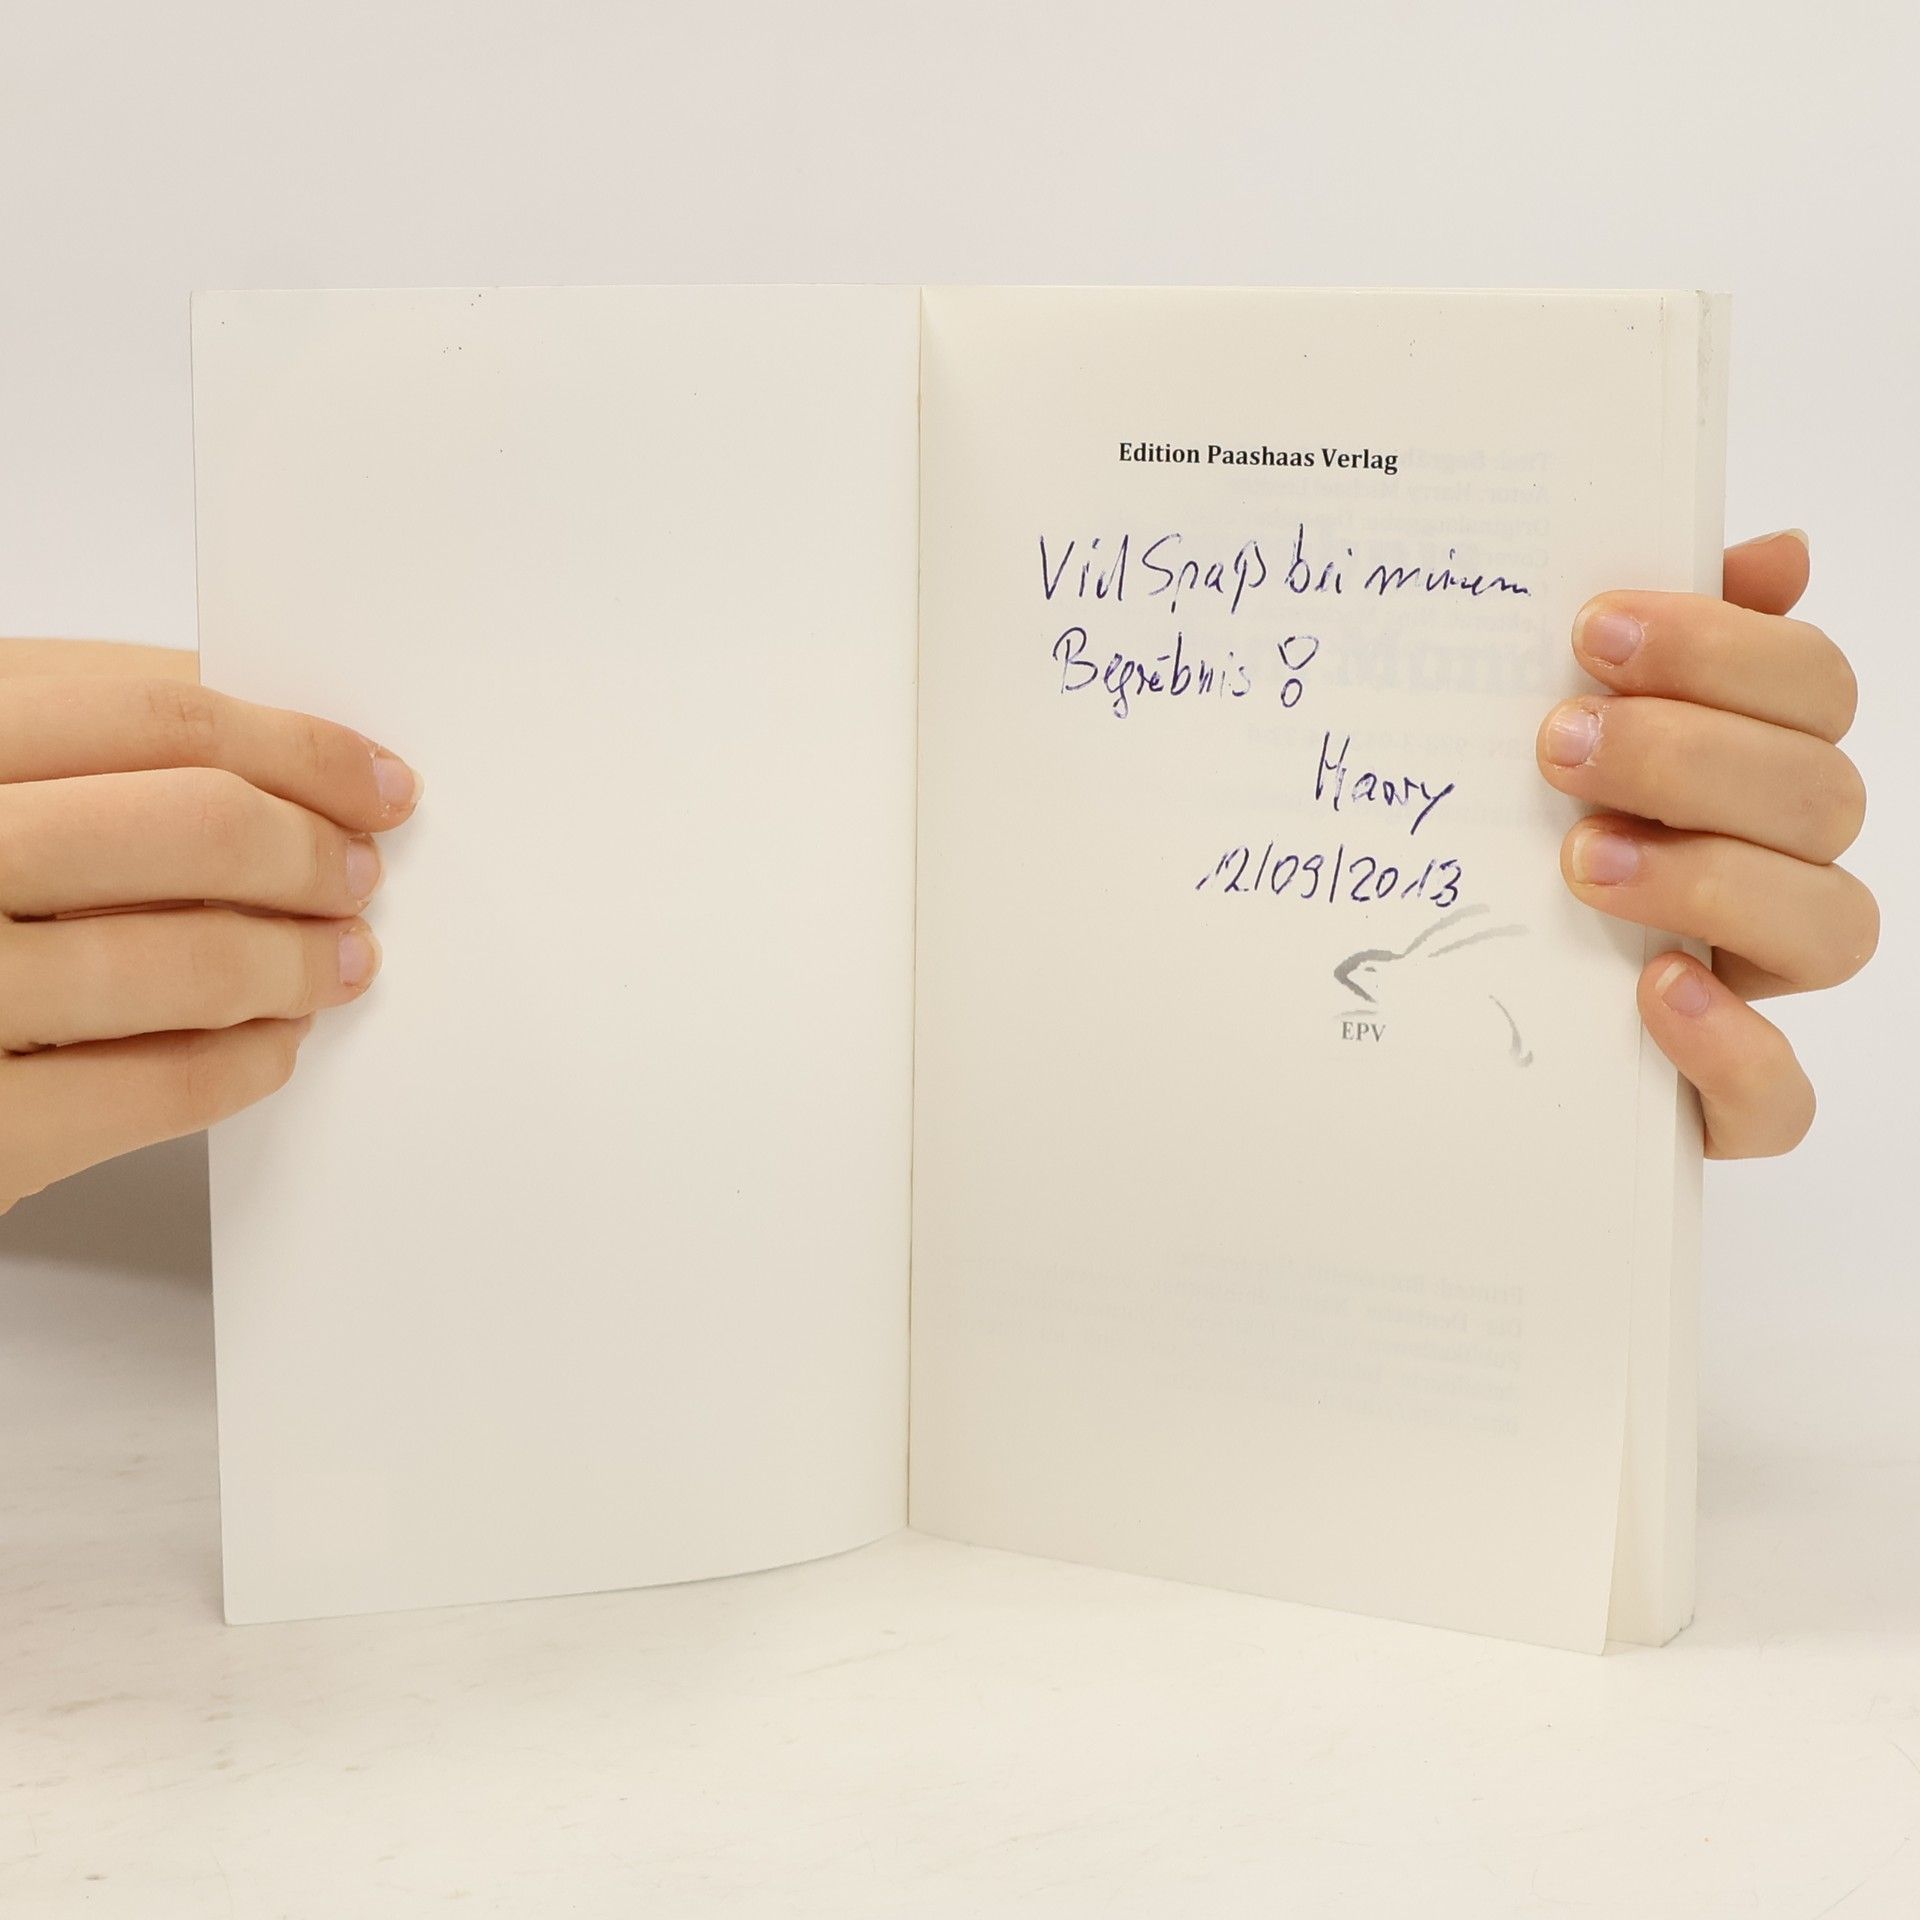 Edition Paashaas Verlag
Viel Spaß bei meinem
Begräbnis!
Harry
12/09/2013
EPV